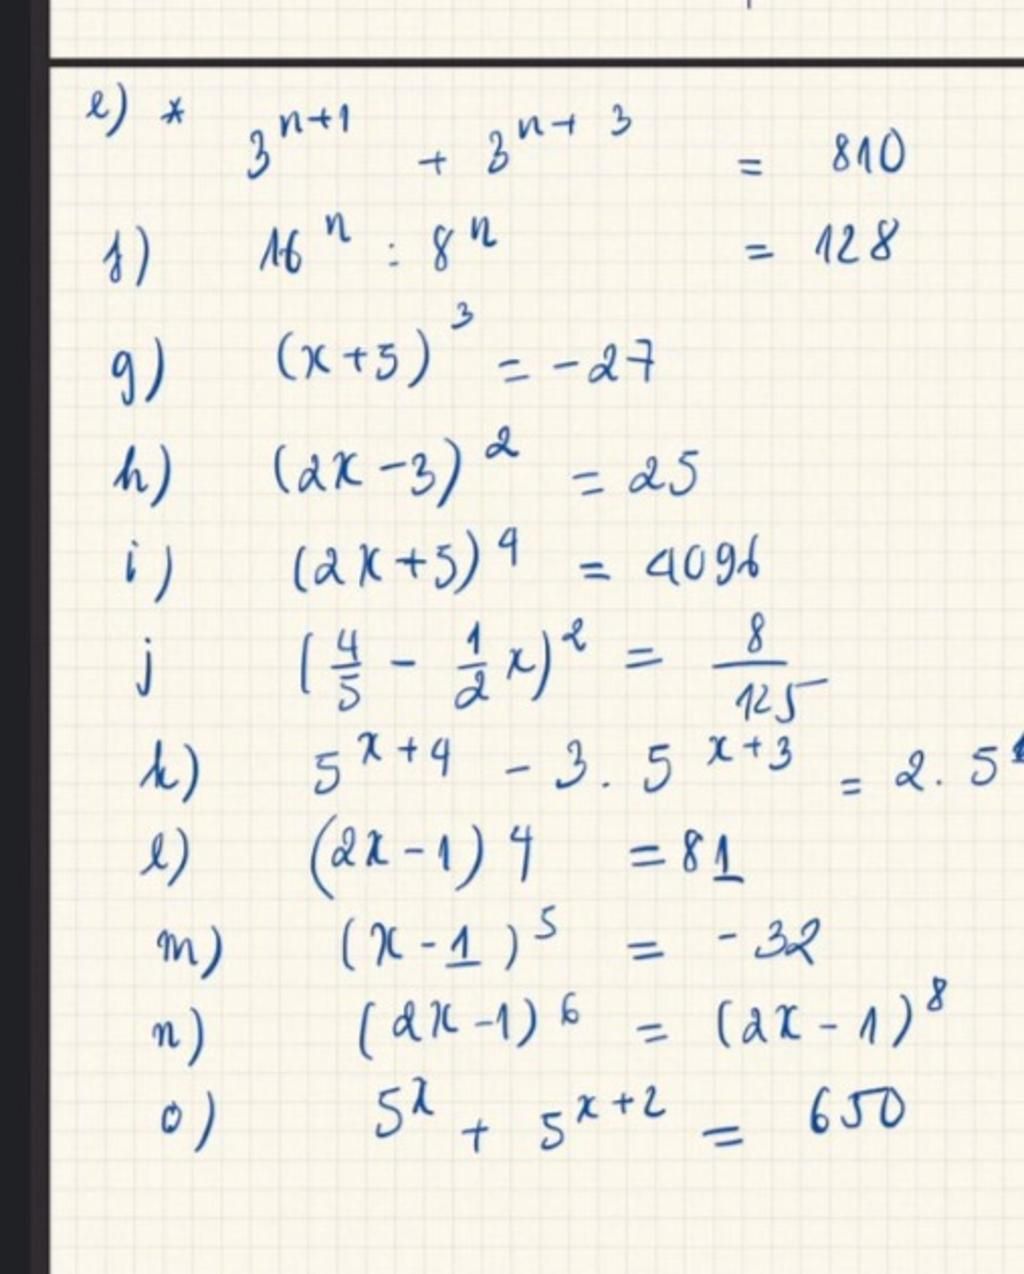 e) * 3^{n+1} + 3^{n+3} = 810
f) 16^n : 8^n = 128
g) (x+5)^3 = -27
h) (2x-3)^2 = 25
i) (2x+5)^4 = 4096
j (4/5 - 1/2 x)^2 = 8/125
k) 5^{x+4} - 3. 5^{x+3} = 2. 5
l) (2x-1) 4 = 81
m) (x-1)^5 = -32
n) (2x-1)^6 = (2x-1)^8
o) 5^x + 5^{x+2} = 650